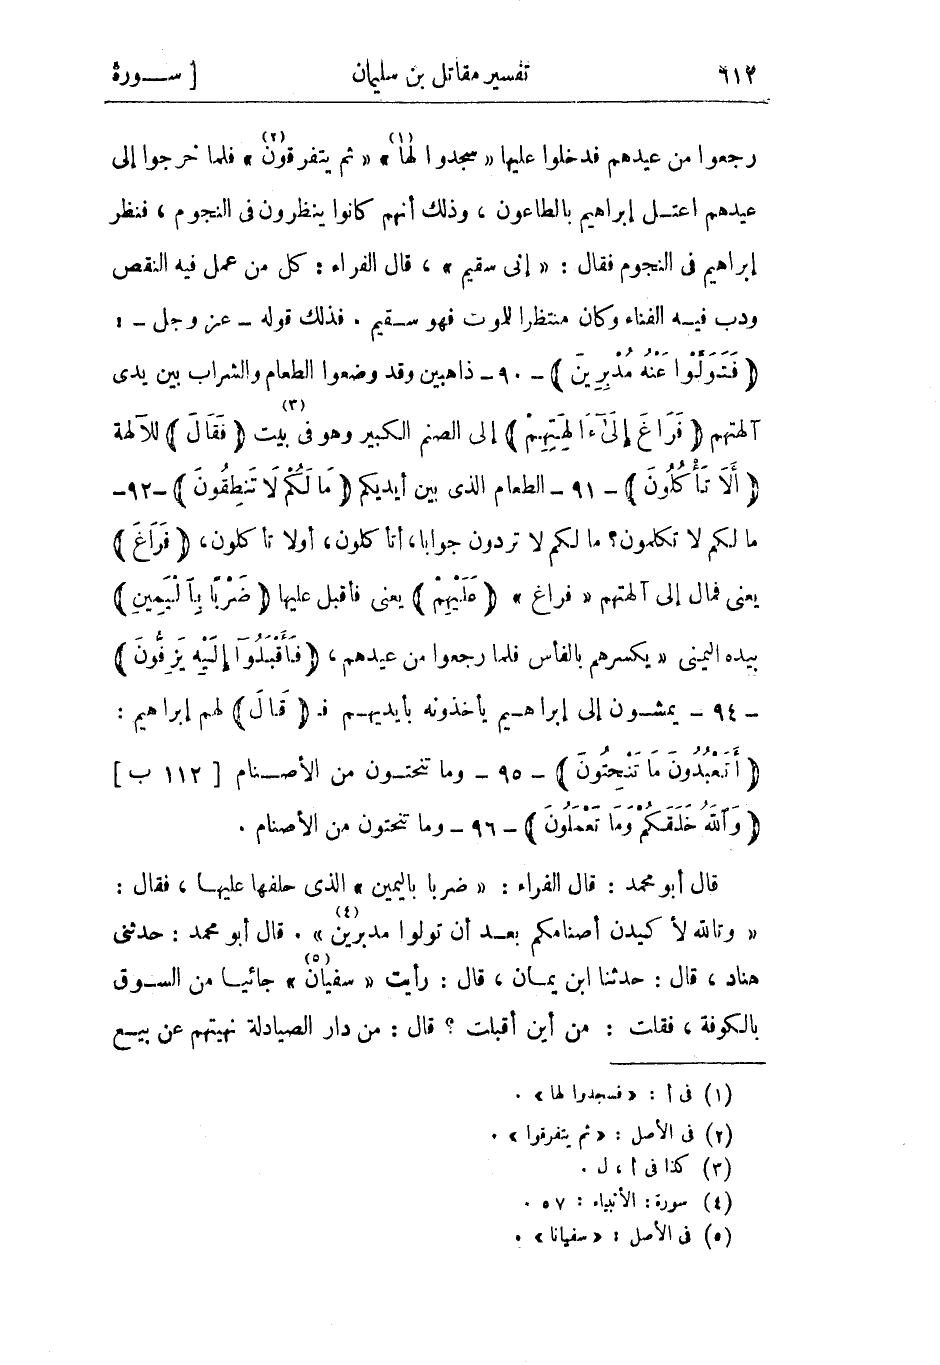 ٦١٢ تفسير مقاتل بن سليمان [ ســورة
رجعوا من عيدهم فدخلوا عليها « سجدوا لها(١) » « ثم يتفرقون(٢) » فلما خرجوا إلى
عيدهم اعتــل إبراهيم بالطاعون ، وذلك أنهم كانوا ينظرون فى النجوم ، فنظر
إبراهيم فى النجوم فقال : « إنى سقيم » ، قال الفراء : كل من عمل فيه النقص
ودب فيــه الفناء وكان منتظرا للموت فهو ســقيم . فذلك قوله ـ عز وجل ـ :
﴿ فَتَوَلَّوْا عَنْهُ مُدْبِرِينَ ﴾ ـ ٩٠ ـ ذاهبين وقد وضعوا الطعام والشراب بين يدى
آلهتهم ﴿ فَرَاغَ إِلَىٰٓ ءَالِهَتِهِمْ ﴾ إلى الصنم الكبير وهو فى بيت(٣) ﴿ فَقَالَ ﴾ للآلهة
﴿ أَلَا تَأْكُلُونَ ﴾ ـ ٩١ ـ الطعام الذى بين أيديكم ﴿ مَا لَكُمْ لَا تَنطِقُونَ ﴾ ـ ٩٢ ـ
ما لكم لا تكلمون؟ ما لكم لا تردون جوابا، أتأكلون، أولا تأكلون، ﴿ فَرَاغَ ﴾
يعنى فمال إلى آلهتهم « فراغ » ﴿ عَلَيْهِمْ ﴾ يعنى فأقبل عليها ﴿ ضَرْبًا بِٱلْيَمِينِ ﴾
بيده اليمنى « يكسرهم بالفأس فلما رجعوا من عيدهم ، ﴿ فَأَقْبَلُوٓا إِلَيْهِ يَزِفُّونَ ﴾
ـ ٩٤ ـ يمشــون إلى إبراهــيم يأخذونه بأيديهــم فـ ﴿ قَالَ ﴾ لهم إبراهيم :
﴿ أَتَعْبُدُونَ مَا تَنْحِتُونَ ﴾ ـ ٩٥ ـ وما تنحتــون من الأصــنام [ ١١٢ ب ]
﴿ وَٱللَّهُ خَلَقَكُمْ وَمَا تَعْمَلُونَ ﴾ ـ ٩٦ ـ وما تنحتون من الأصنام .
قال أبو محمد : قال الفراء : « ضربا باليمين » الذى حلفها عليهــا ، فقال :
« وتالله لأكيدن أصنامكم بعــد أن تولوا مدبرين(٤) » . قال أبو محمد : حدثنى
هناد ، قال : حدثنا ابن يمــان ، قال : رأيت « سفيان(٥) » جائيــا من الســوق
بالكوفة ، فقلت : من أين أقبلت ؟ قال : من دار الصيادلة نهيتهم عن بيــع
(١) فى أ : « فسجدوا لها » .
(٢) فى الأصل : « ثم يتفرقوا » .
(٣) كذا فى أ ، ل .
(٤) سورة : الأنبياء : ٥٧ .
(٥) فى الأصل : « سفيانا » .